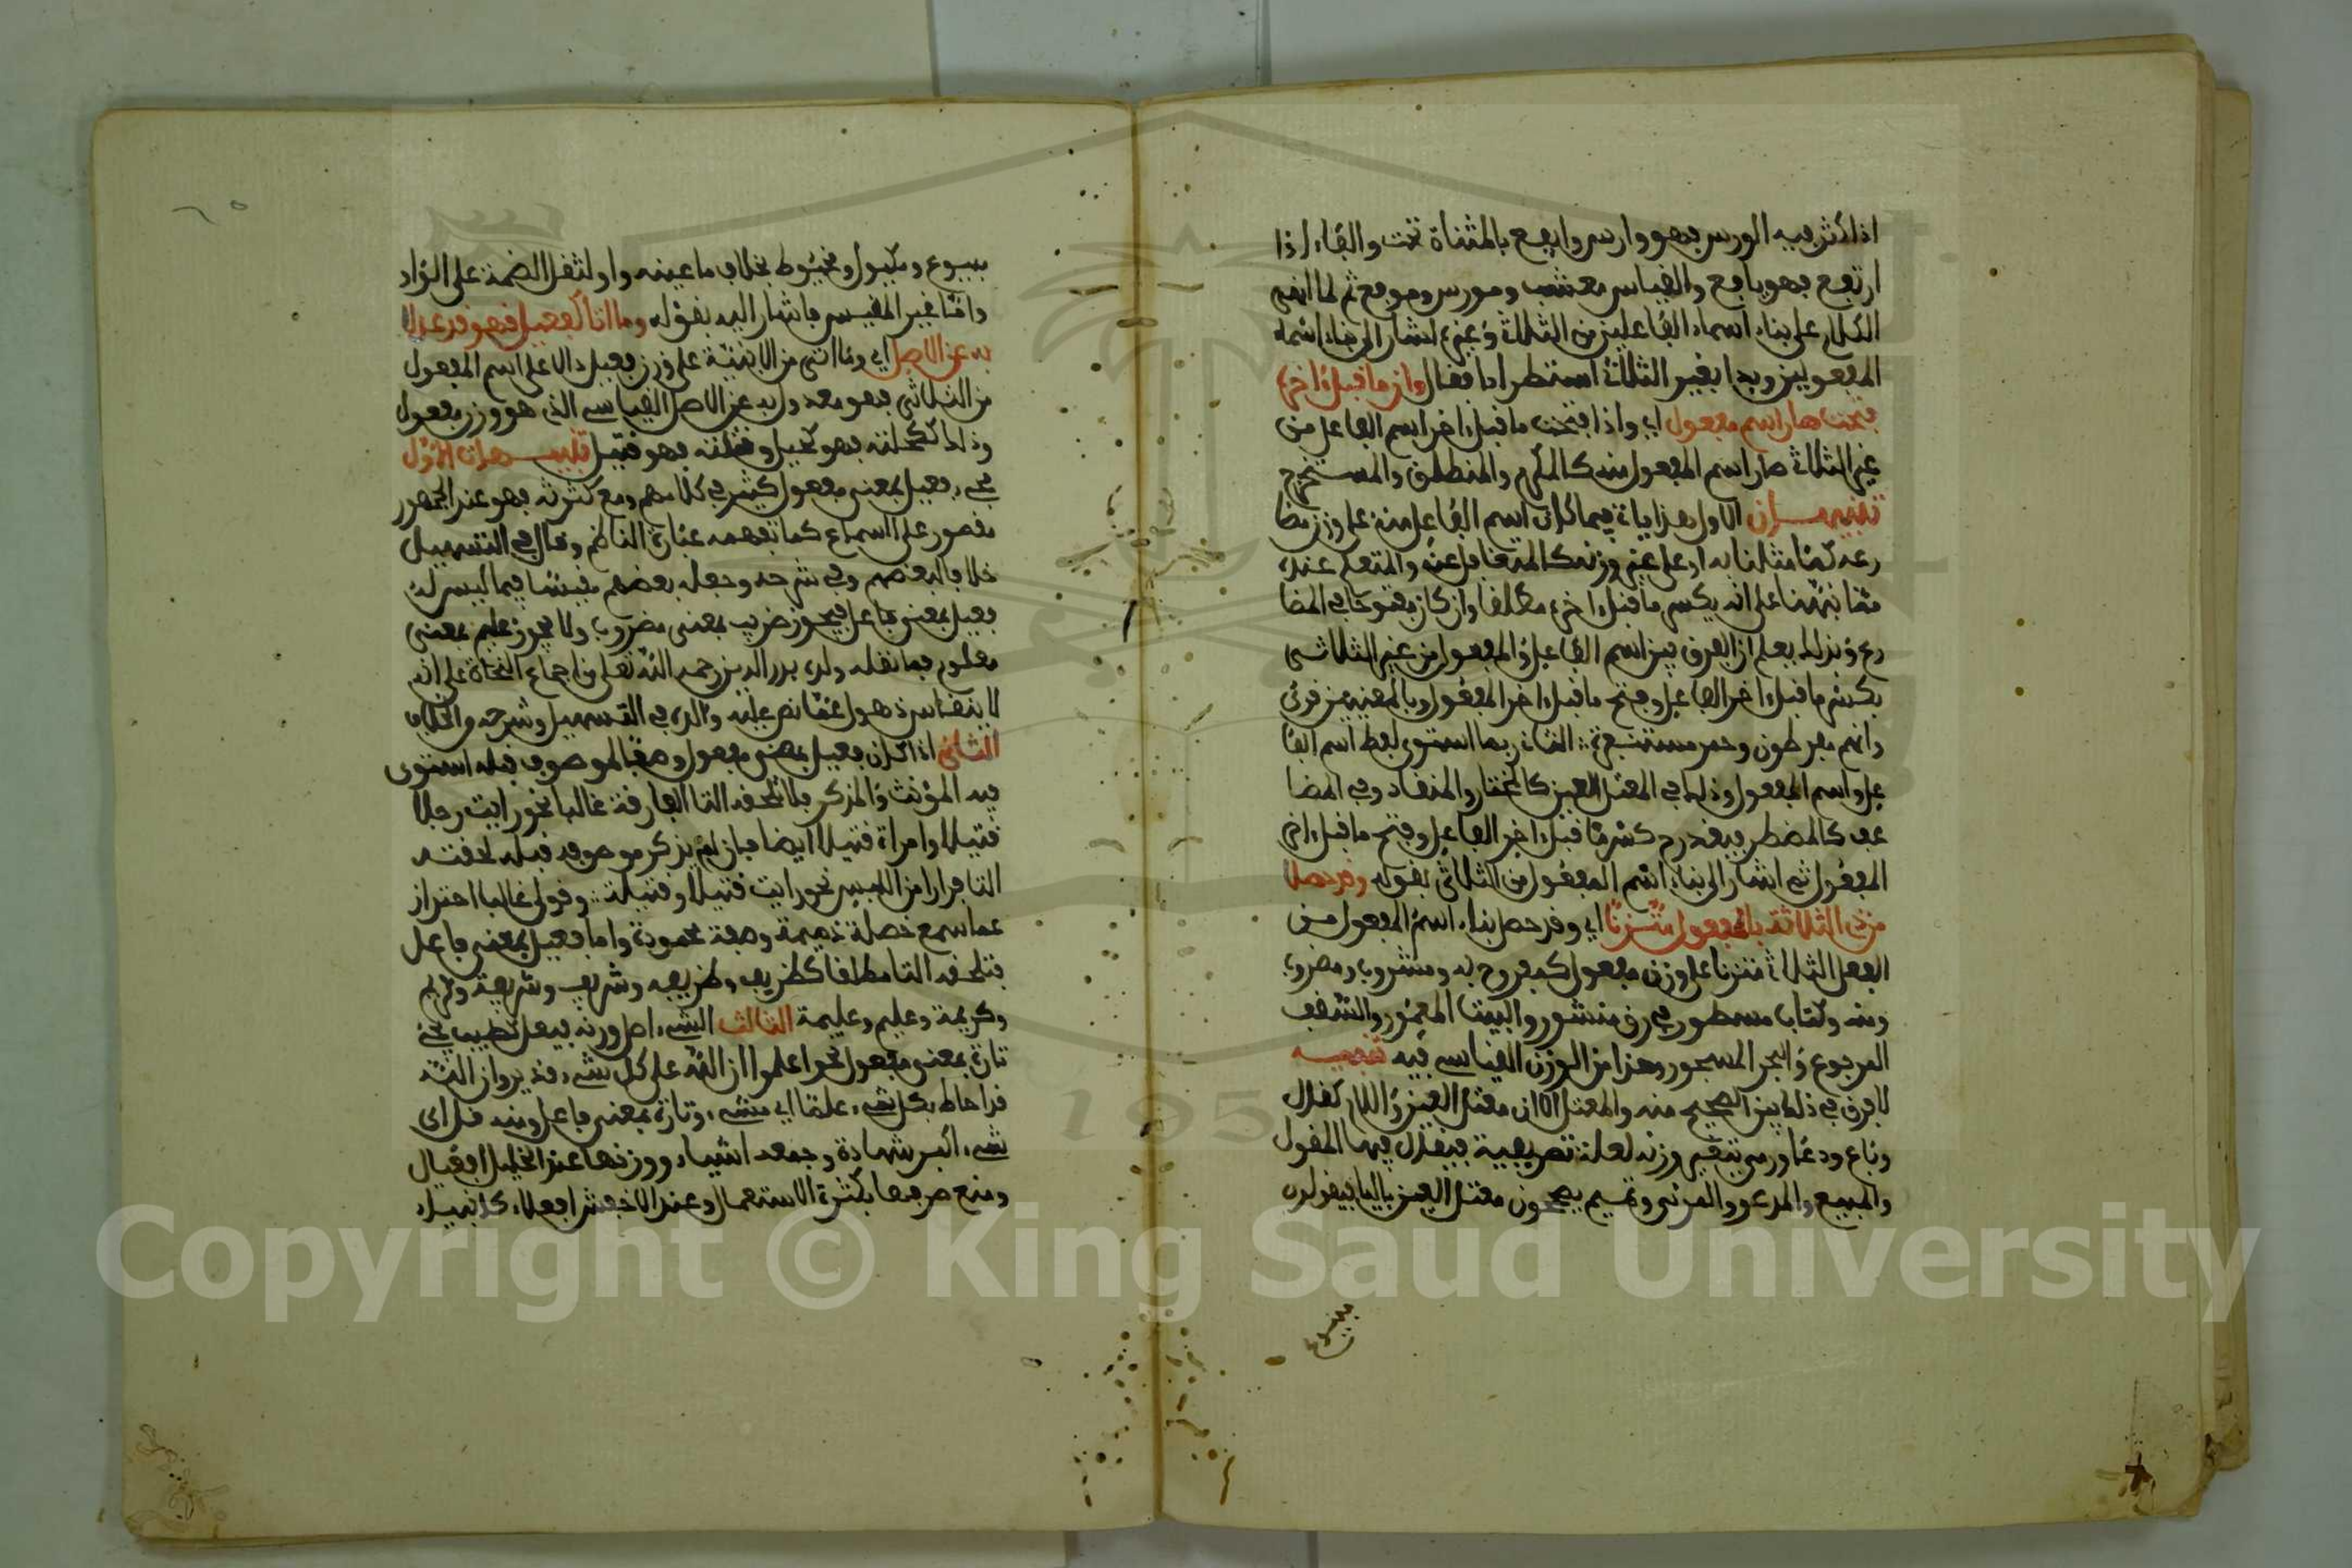 اذا كثر فيه الورس فهو وارس وايفع بالمثناة تحت والفاء اذا
ارتفع فهو يافع والقياس معشب ومورس وموفع ثم لما انهى
الكلام على بناء اسماء الفاعلين من الثلاثي وغيره اشار الى بناء اسماء
المفعولين وبدا بغير الثلاثي استطرادا فقال وان ما قبل اخره
فتحت صار اسم مفعول اي واذا فتحت ما قبل اخر اسم الفاعل من
غير الثلاثي صار اسم المفعول منه كالمكرم والمنطلق والمستخرج
تنبيهان الاول هذا يات فيما كان اسم الفاعل منه على وزن مضا
رعه كما مثلنا به او على غير وزنه كالمتغافل عنه والمتعلم عنده
مما نبهنا على انه يكسر ما قبل اخره مطلقا وان كان مفتوحا في المضا
رع وبذلك يعلم ان الفرق بين اسم الفاعل والمفعول من غير الثلاثي
بكسر ما قبل اخر الفاعل وفتح ما قبل اخر المفعول وبالمعنيين قرئ
وانهم مفرطون وحمر مستنفرة الثاني ربما استوى لفظ اسم الفا
عل واسم المفعول وذلك في المعتل العين كالمختار والمنقاد وفي المضا
عف كالمضطر فيقدر كسر ما قبل اخر الفاعل وفتح ما قبل اخر
المفعول ثم اشار الى بناء اسم المفعول من الثلاثي بقوله وقد حصلا
من ذي الثلاثة بالمفعول متزنا اي وقد حصل بناء اسم المفعول من
الفعل الثلاثي متزنا على وزن مفعول كمفروح به ومشروب ومضروب
ومنه وكتاب مسطور في رق منشور والبيت المعمور والسقف
المرفوع والبحر المسجور وهذا من الوزن القياسي فيه تنبيه
لا فرق في ذلك بين الصحيح منه والمعتل الا ان معتل العين واللام كقال
وباع ودعا ورمى يتغير وزنه لعلة تصريفية فيقال فيها المقول
والمبيع والمدعو والمرمي وتميم يصححون معتل العين بالياء فيقولون
مبيوع
مبيوع ومكيول ومخيوط بخلاف ما عينه واو لثقل الضمة على الواو
واما غير المقيس فاشار اليه بقوله وما اتى كفعيل فهو قد عدلا
به عن الاصل اي وما اتى من الابنية على وزن فعيل دالا على اسم المفعول
من الثلاثي فهو معدول به عن الاصل القياسي الذي هو وزن مفعول
وذلك كحلته فهو كحيل وقتلته فهو قتيل تنبيهات الاول
مجيء فعيل بمعنى مفعول كثير في كلامهم ومع كثرته فهو عند الجمهور
مقصور على السماع كما تفهمه عبارة الناظم وقال في التسهيل
خلافا لبعضهم وفي شرحه وجعله بعضهم مقيسا فيما ليس له
فعيل بمعنى فاعل فيجوز ضريب بمعنى مضروب ولا يجوز عليم بمعنى
معلوم فما نقله ولده بدر الدين رحمه الله تعلى من اجماع النحاة على انه
لا ينقاس ذهول عما نص عليه والده في التسهيل وشرحه من الخلاف
الثاني اذا كان فعيل بمعنى مفعول وصفا لموصوف قبله استوى
فيه المؤنث والمذكر فلا تلحقه التا الفارقة غالبا نحو رايت رجلا
قتيلا وامراة قتيلا ايضا فان لم يذكر موصوفه قبله لحقته
التا فرارا من اللبس نحو رايت قتيلا وقتيلة وقولي غالبا احتراز
عما سمع خصلة ذميمة وصفة محمودة واما فعيل بمعنى فاعل
فتلحقه التا مطلقا كظريف وظريفه وشريف وشريفة وكريم
وكريمة وعليم وعليمة الثالث الشيء اصل وزنه فيعل كطيب يجيء
تارة بمعنى مفعول نحو اعلموا ان الله على كل شيء قدير وان الله
قد احاط بكل شيء علما اي مشيء وتارة بمعنى فاعل ومنه قل اي
شيء اكبر شهادة وجمعه اشياء ووزنها عند الخليل افعيال
ومنع صرفها بكثرة الاستعمال وعند الاخفش افعلاء كانبياء
Copyright © King Saud University
195